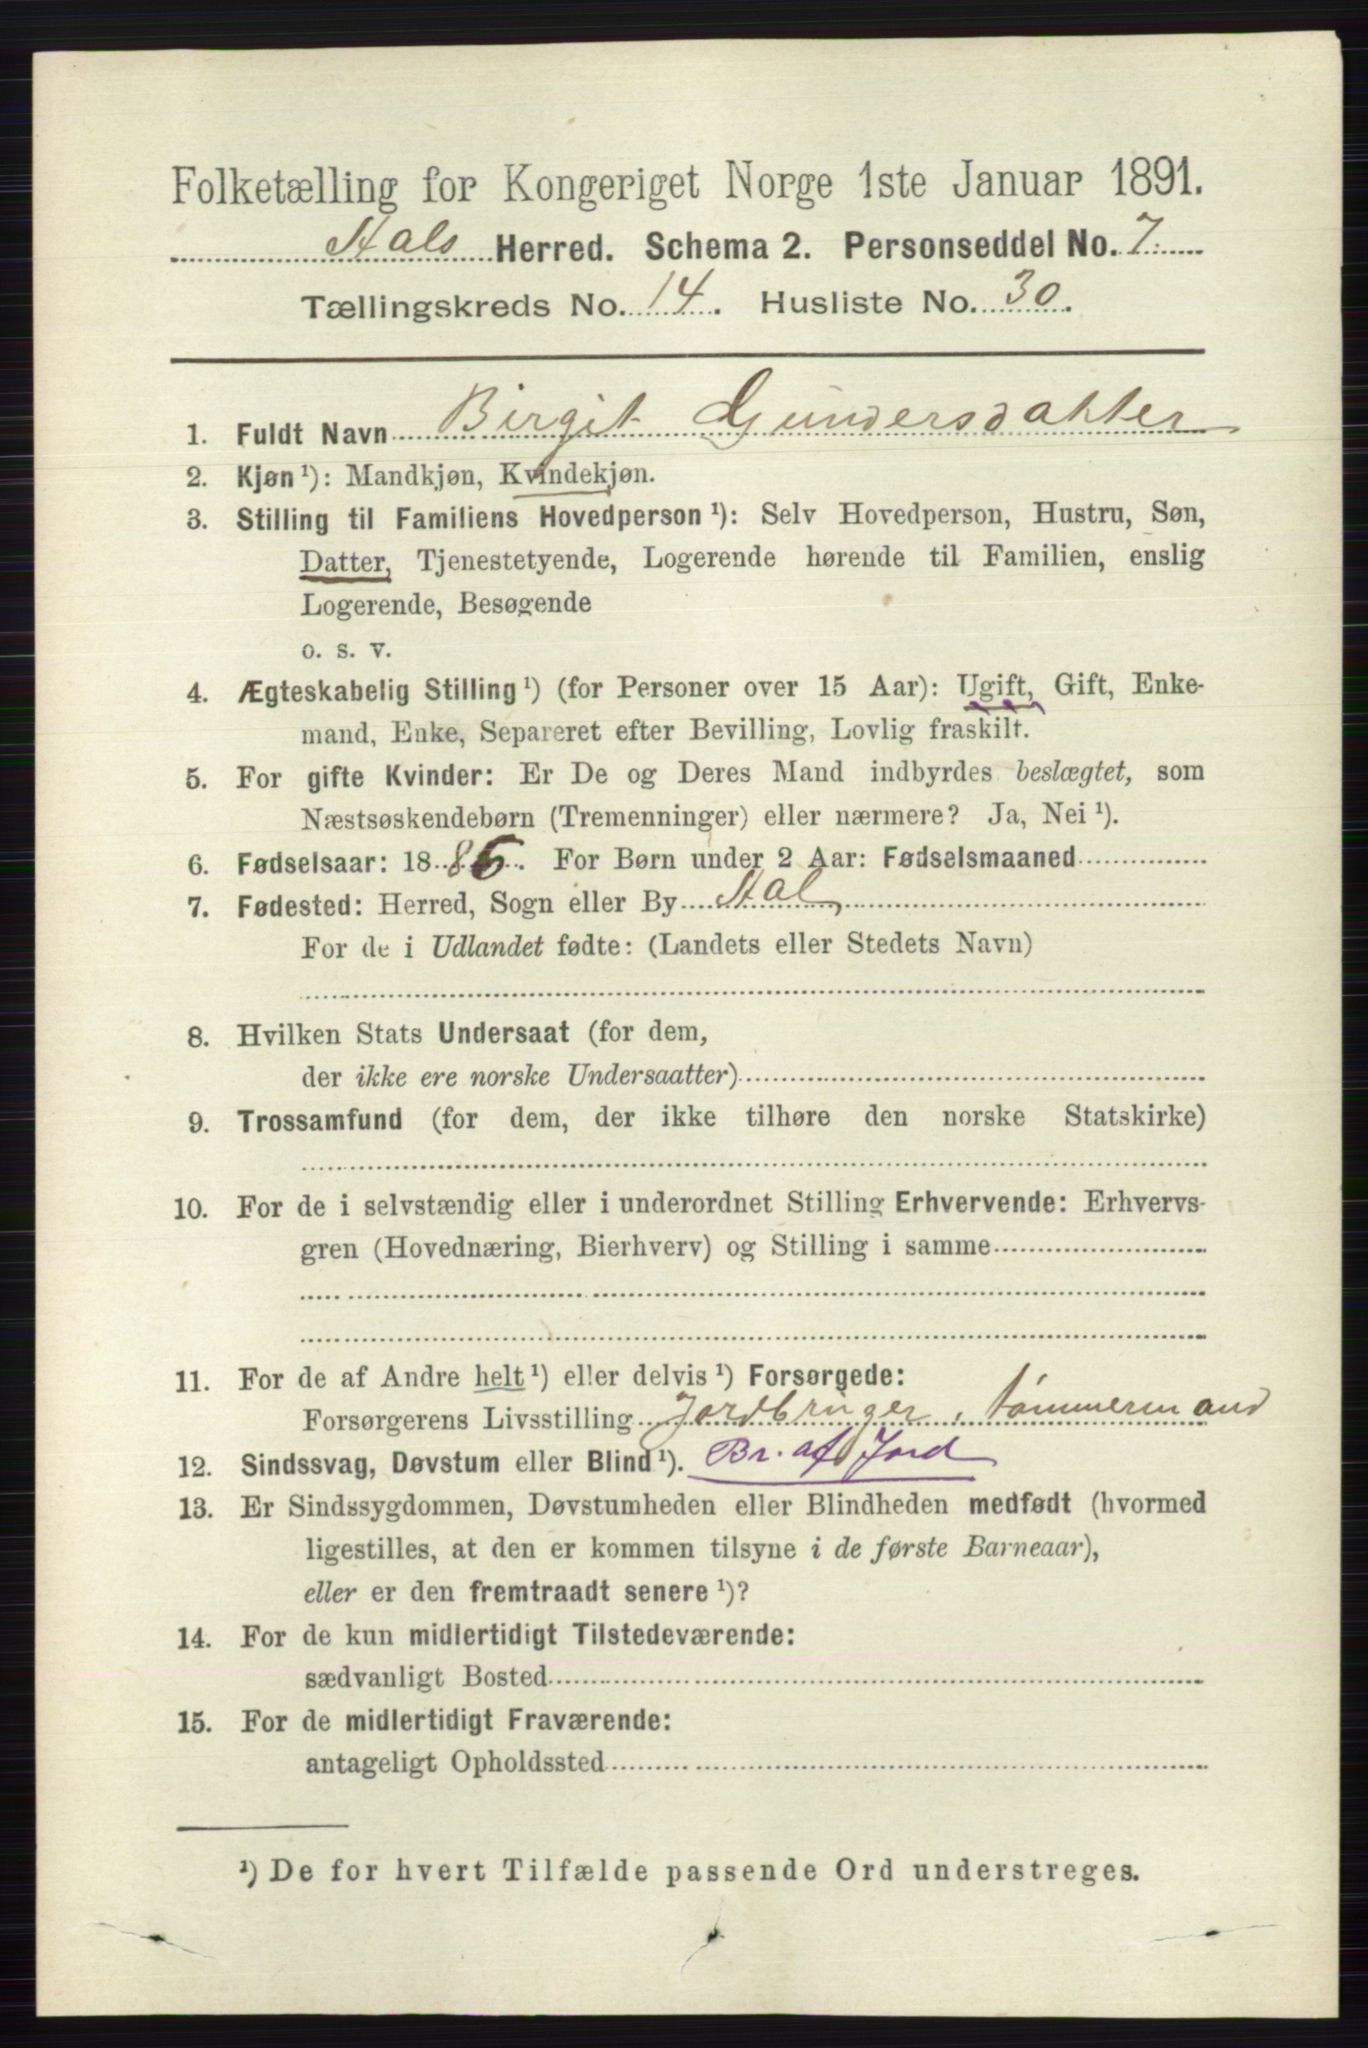 Folketælling for Kongeriget Norge 1ste Januar 1891.
Aals Herred. Schema 2. Personseddel No. 7.
Tællingskreds No. 14. Husliste No. 30.
1. Fuldt Navn Birgit Gundersdahter
2. Kjøn ¹): Mandkjøn, Kvindekjøn.
3. Stilling til Familiens Hovedperson ¹): Selv Hovedperson, Hustru, Søn,
Datter, Tjenestetyende, Logerende hørende til Familien, enslig
Logerende, Besøgende
o. s. v.
4. Ægteskabelig Stilling ¹) (for Personer over 15 Aar): Ugift, Gift, Enke-
mand, Enke, Separeret efter Bevilling, Lovlig fraskilt.
5. For gifte Kvinder: Er De og Deres Mand indbyrdes beslægtet, som
Næstsøskendebørn (Tremenninger) eller nærmere? Ja, Nei ¹).
6. Fødselsaar: 1886. For Børn under 2 Aar: Fødselsmaaned
7. Fødested: Herred, Sogn eller By Aal
For de i Udlandet fødte: (Landets eller Stedets Navn)
8. Hvilken Stats Undersaat (for dem,
der ikke ere norske Undersaatter)
9. Trossamfund (for dem, der ikke tilhøre den norske Statskirke)
10. For de i selvstændig eller i underordnet Stilling Erhvervende: Erhvervs-
gren (Hovednæring, Bierhverv) og Stilling i samme
11. For de af Andre helt ¹) eller delvis ¹) Forsørgede:
Forsørgerens Livsstilling Jordbruger, tømmermand
12. Sindssvag, Døvstum eller Blind ¹). Br. af Jord
13. Er Sindssygdommen, Døvstumheden eller Blindheden medfødt (hvormed
ligestilles, at den er kommen tilsyne i de første Barneaar),
eller er den fremtraadt senere ¹)?
14. For de kun midlertidigt Tilstedeværende:
sædvanligt Bosted
15. For de midlertidigt Fraværende:
antageligt Opholdssted
¹) De for hvert Tilfælde passende Ord understreges.